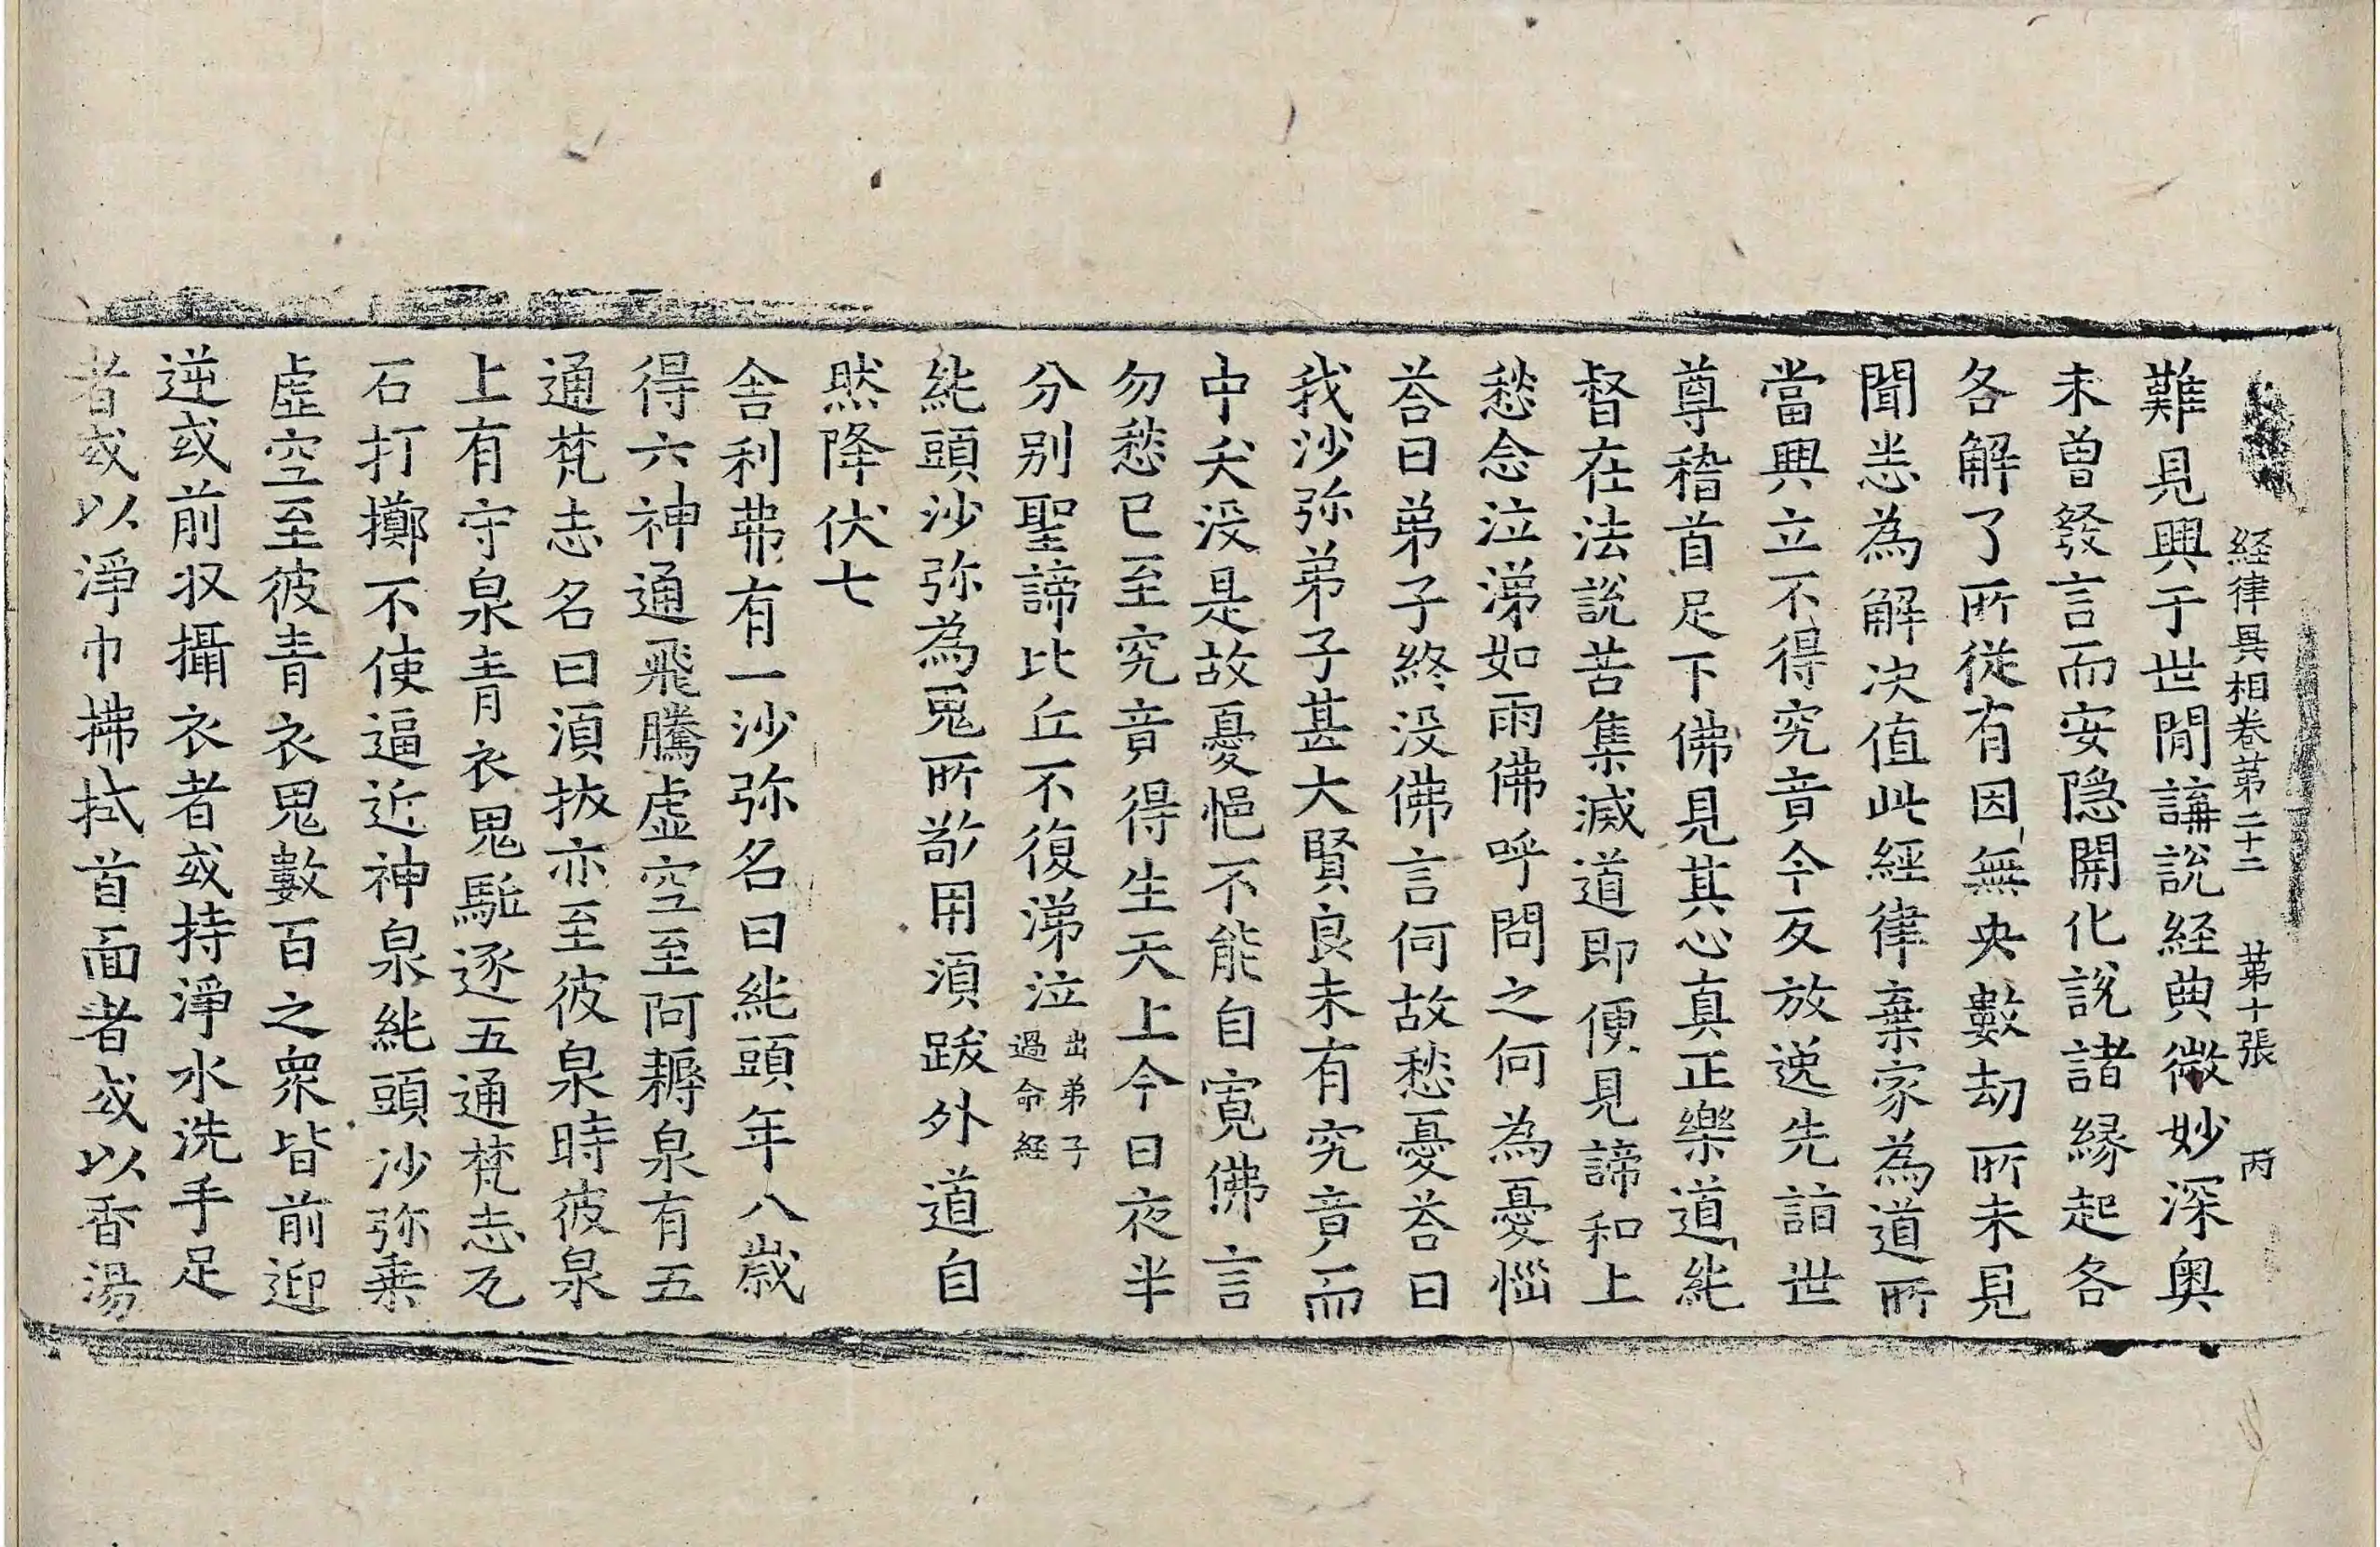 経律異相卷第二十二 第十張 丙
難見興于世閒講說経典微妙深奥
未曾發言而安隐開化說諸縁起各
各解了所従有因無央數劫所未見
聞悉為解决值此經律棄家為道所
當興立不得究竟今反放逸先詣世
尊稽首足下佛見其心真正樂道純
督在法說苦集滅道即便見諦和上
愁念泣涕如雨佛呼問之何為憂惱
荅曰弟子終没佛言何故愁憂荅曰
我沙弥弟子甚大賢良未有究竟而
中夭没是故憂悒不能自寛佛言
勿愁已至究竟得生天上今日夜半
分别聖諦比丘不復涕泣出弟子過命経
純頭沙弥為鬼所敬用湏跋外道自
然降伏七
舍利弗有一沙弥名曰純頭年八歲
得六神通飛騰虚空至阿耨泉有五
通梵志名曰湏拔亦至彼泉時彼泉
上有守泉青衣鬼駈逐五通梵志瓦
石打擲不使逼近神泉純頭沙弥乗
虚空至彼青衣鬼數百之衆皆前迎
逆或前収攝衣者或持淨水洗手足
者或以淨巾拂拭首面者或以香湯